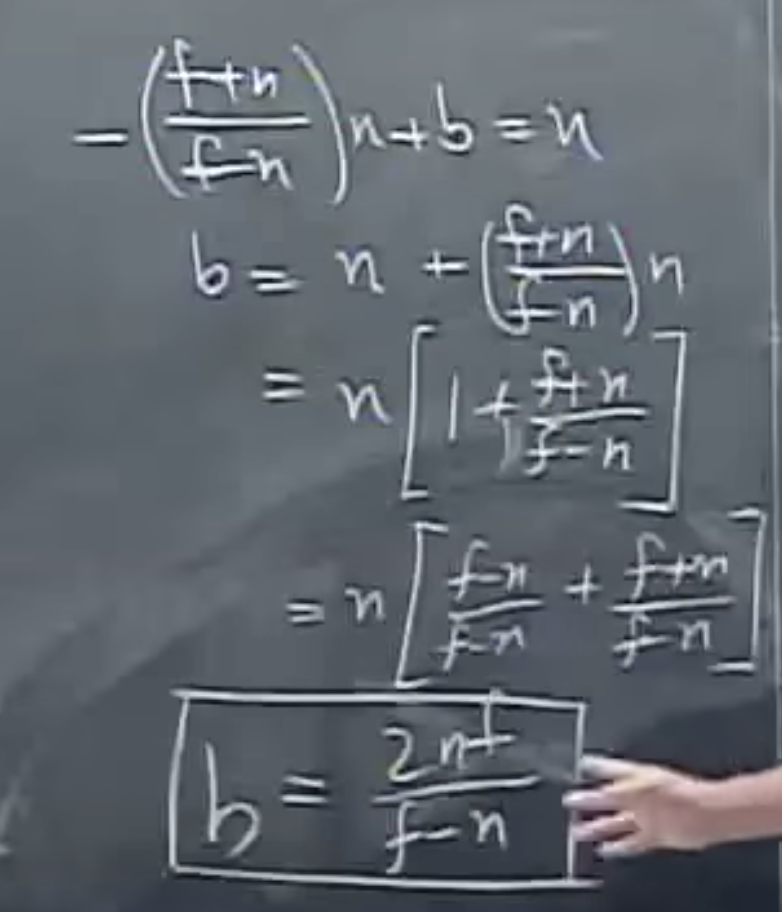 -(f+n/f-n)n+b=n
b = n + (f+n/f-n)n
= n[1+f+n/f-n]
= n[f-n/f-n + f+n/f-n]
b = 2nf/f-n